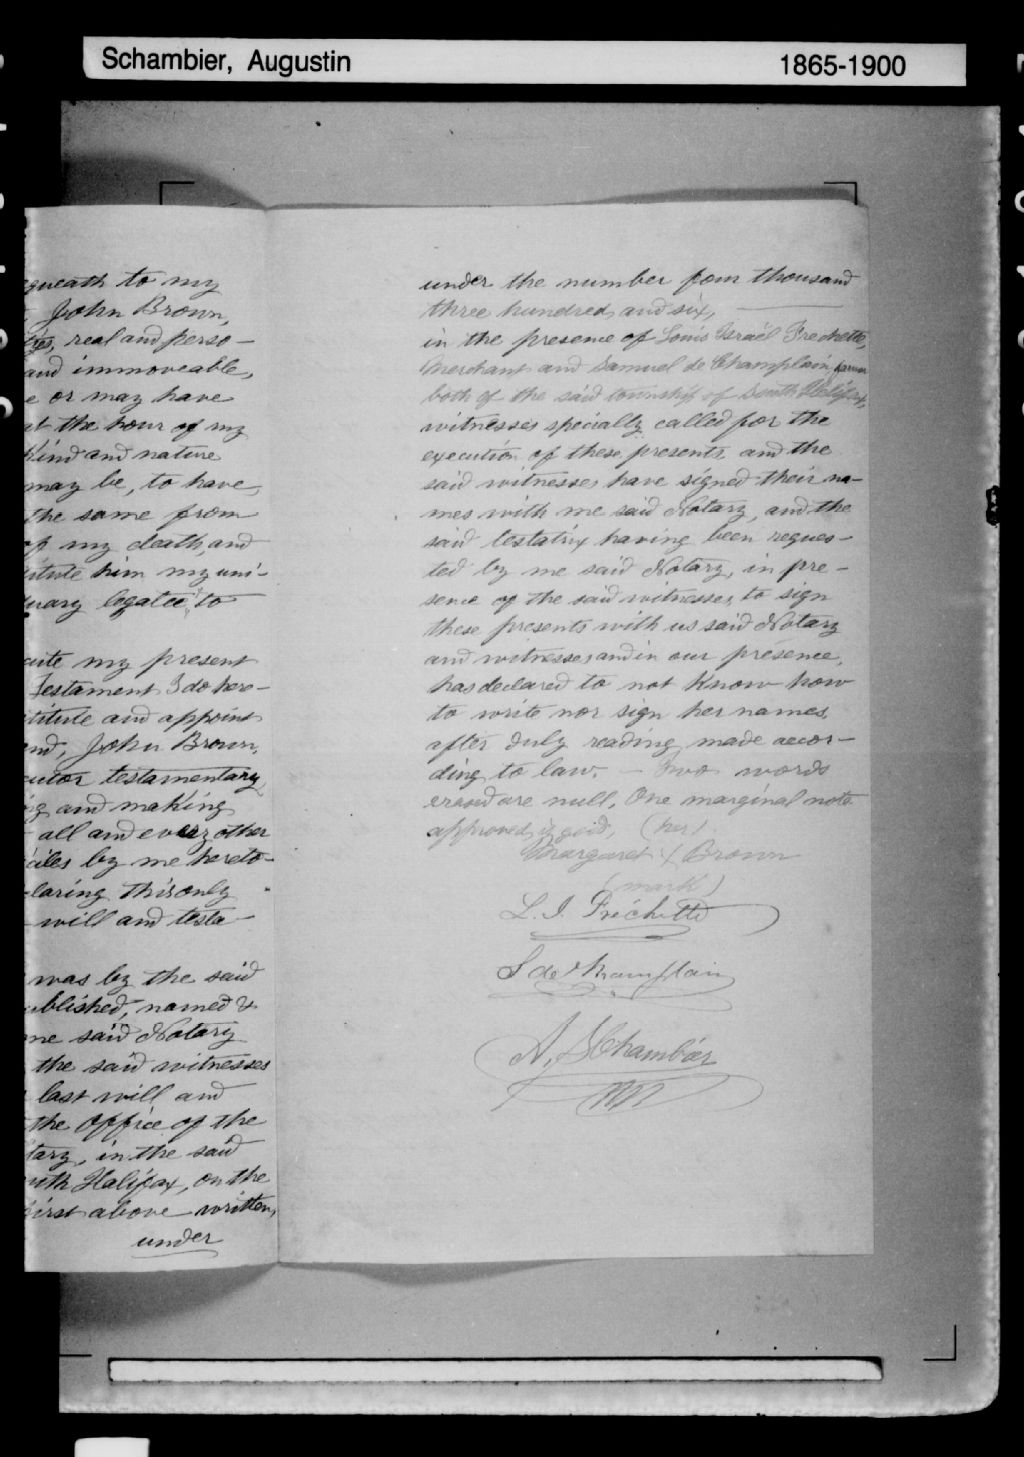 Schambier, Augustin
1865-1900
queath to my
John Brown,
ties, real and perso-
and immoveable,
e or may have
at the hour of my
Kind and nature
may be, to have
the same from
of my death, and
titute him my uni-
uary legatee, to
cute my present
Testament I do here-
titute and appoint
end, John Brown,
cutor testamentary
ng and making
all and every other
ciles by me hereto-
laring this only
will and testa-
was by the said
ublished, named &
me said Notary
the said witnesses
last will and
the Office of the
tary, in the said
uth Halifax, on the
first above written,
under
under the number four thousand
three hundred and six,
in the presence of Louis Israël Frechette,
Merchant and Samuel de Champlain, farmer
both of the said township of South Halifax,
witnesses specially called for the
execution of these presents and the
said witnesses have signed their na-
mes with me said Notary, and the
said testatrix having been reques-
ted by me said Notary, in pre-
sence of the said witnesses, to sign
these presents with us said Notary
and witnesses and in our presence,
has declared to not Know how
to write nor sign her names,
after duly reading made accor-
ding to law. - Two words
erased are null, One marginal note
approved is good, (her)
Margaret X Brown
(mark)
L. I. Fréchette
S de Champlain
A, SChambier
NP